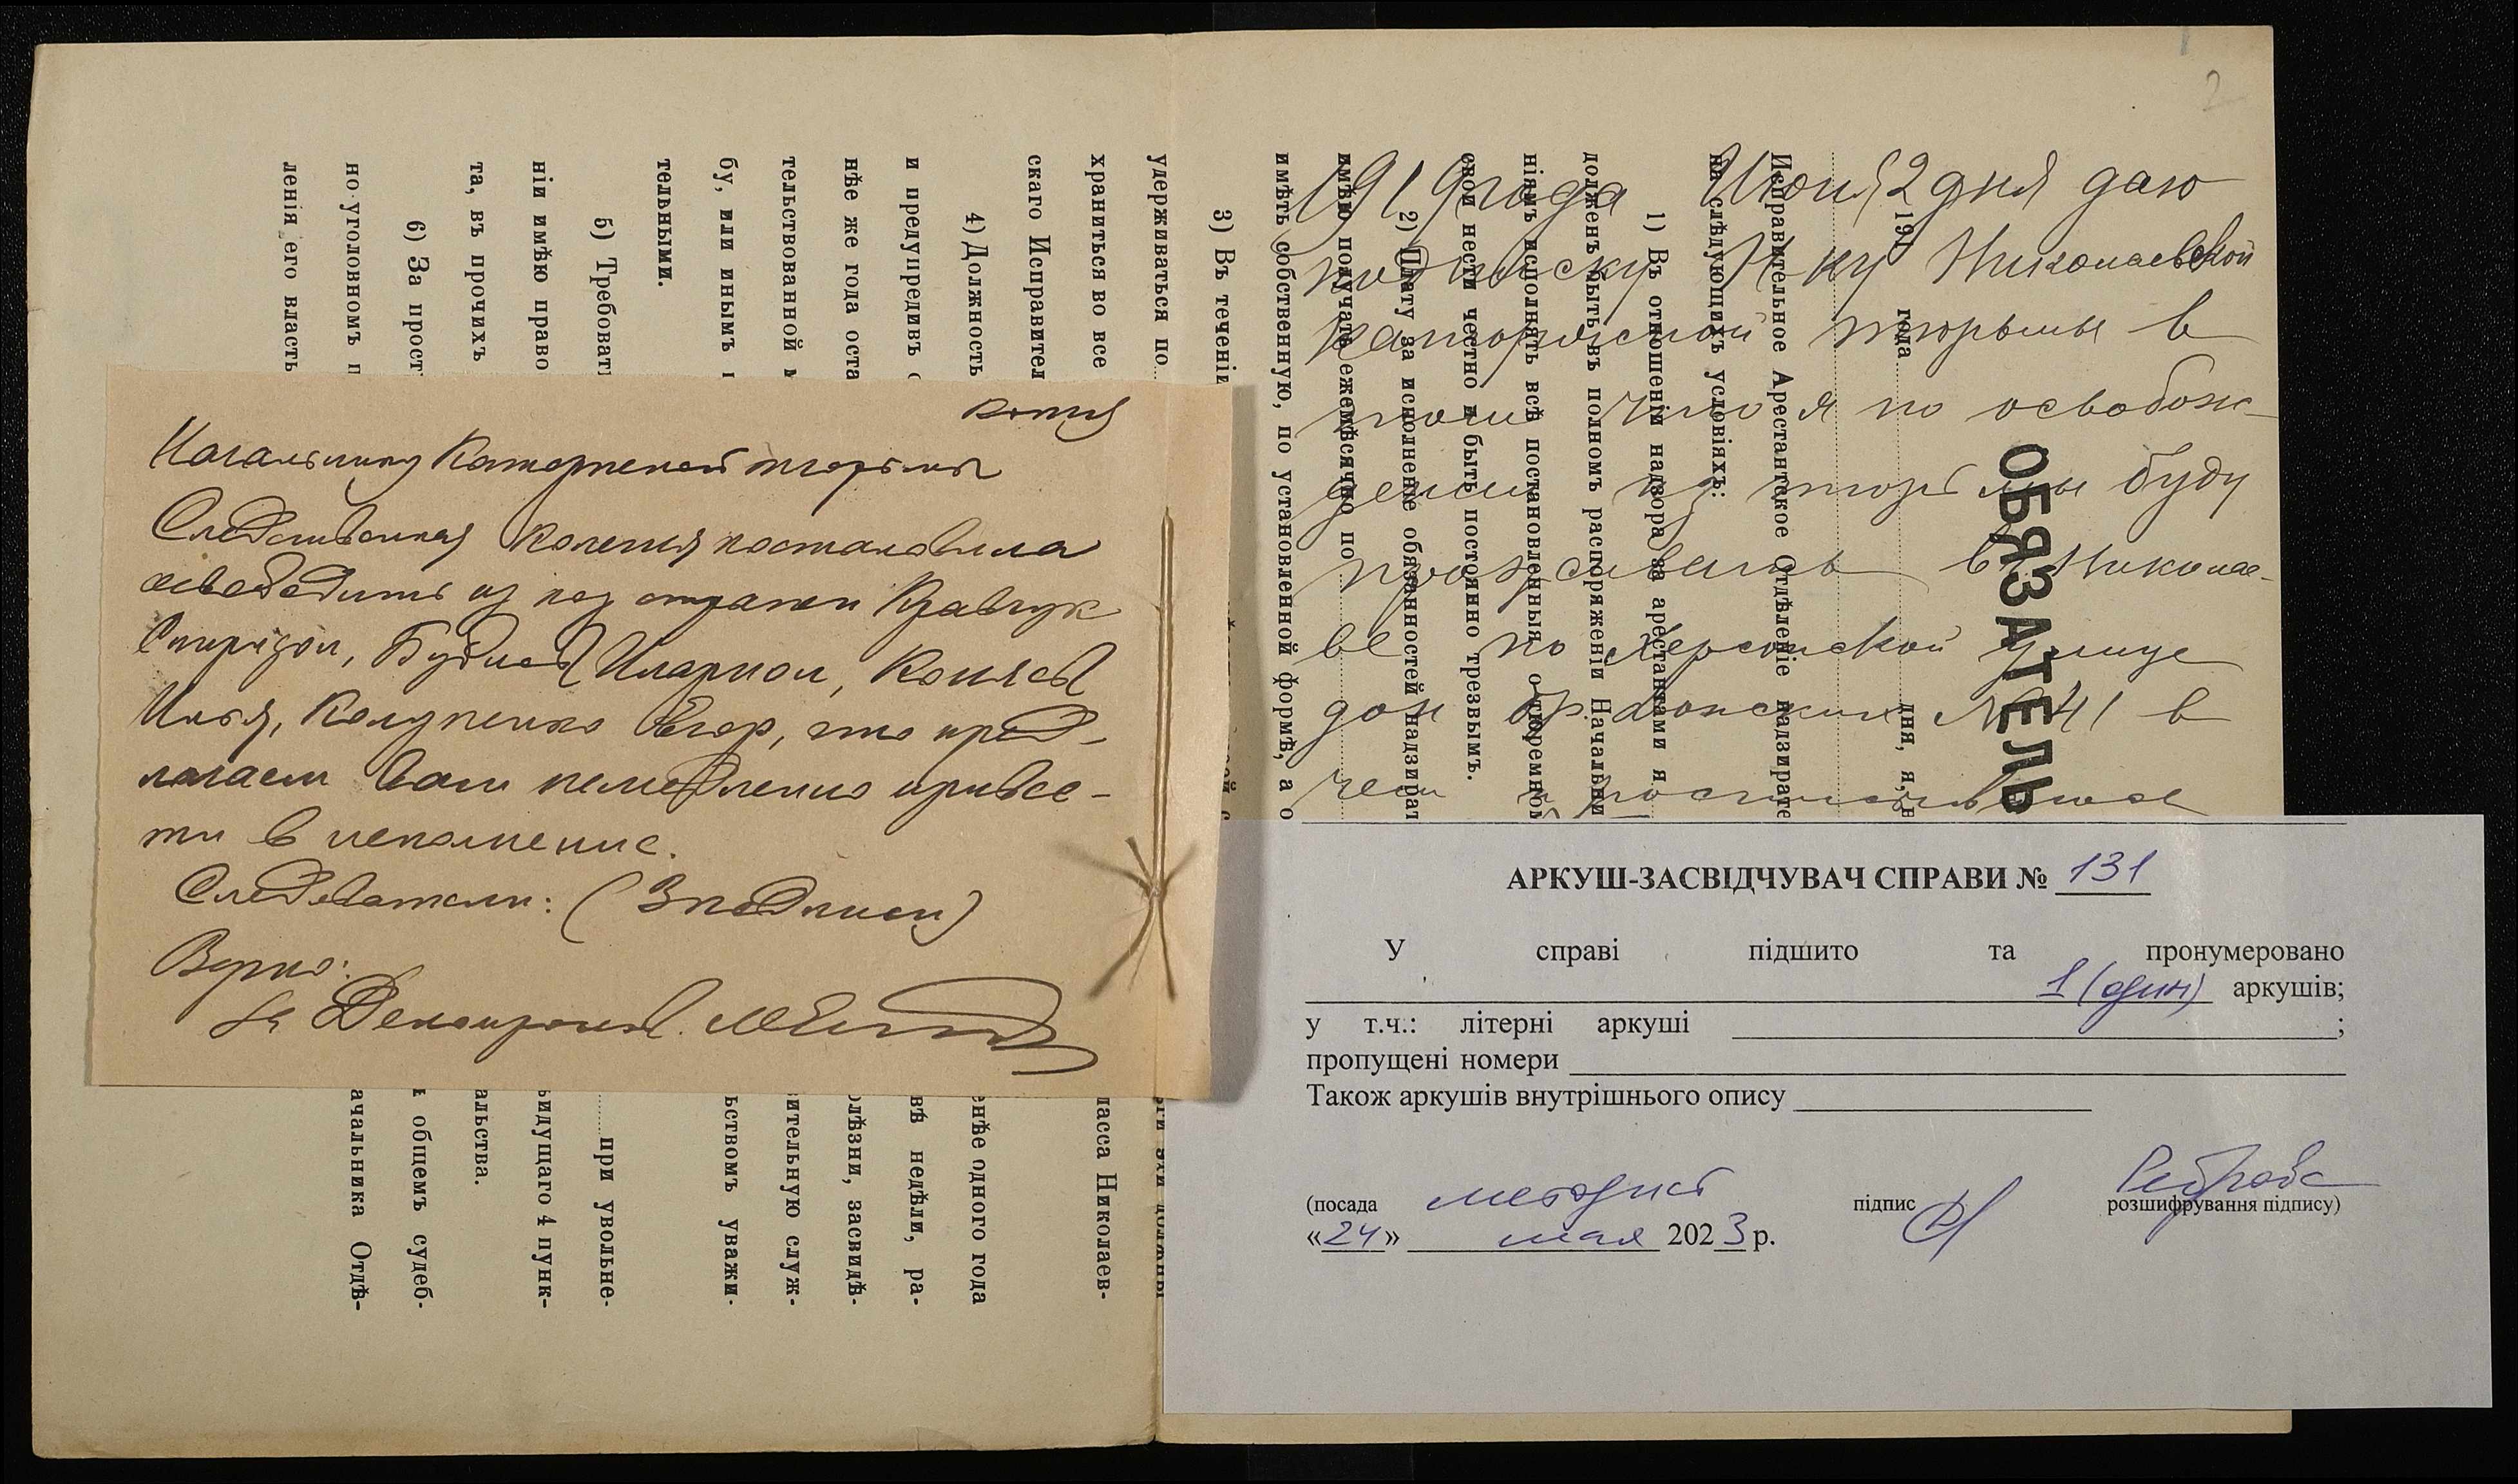 копия
Начальнику Каторжной тюрьмы
Следственная колегия постановила
освободить из под стражи Кравчук
Спиридон, Будков Иларион, Коняев
Илья, Колупенко Егор, что пред-
лагаем Вам немедленно приве-
сти в исполнение.
Следователи: (3 подписи)
Верно:
удерживаться по
храниться во все
скаго Исправител
4) Должность
и предупредивъ
нѣе же года оста
тельствованной
бу, или инымъ
тельными.
5) Требоват
ніи имѣю право
та, въ прочихъ
6) За прост
но уголовномъ
ленія его власть
ласса Николаев-
енѣе одного года
вѣ недѣли, ра-
олѣзни, засвидѣ-
ительную служ-
ьствомъ уважи-
при увольне-
ыдущаго 4 пунк-
альства.
общемъ судеб-
ачальника Отдѣ-
2
1919 года Июня 2 дня даю
подписку Н-ку Николаевской
каторжной тюрьмы в
том что я по освобож-
дении из тюрьмы буду
проживать в Никола-
ве по Херсонской улице
дом № 41 в
чем и
ОБЯЗАТЕЛЬ
191 года дня, я,
Исправительное Арестантское Отдѣленіе надзирате
на слѣдующихъ условіяхъ:
1) Въ отношеніи надзора за арестантами я
долженъ быть въ полномъ распоряженіи Начальни
ніямъ исполнять всѣ постановленныя о тюремном
свои нести честно и быть постоянно трезвымъ.
2) Плату за исполненіе обязанностей надзират
имѣю получать ежемѣсячно по
имѣть собственную, по установленной формѣ, а о
3) Въ теченіи
АРКУШ-ЗАСВІДЧУВАЧ СПРАВИ № 131
У справі підшито та пронумеровано
1 (один) аркушів;
у т.ч.: літерні аркуші ;
пропущені номери
Також аркушів внутрішнього опису
(посада методист підпис розшифрування підпису)
«24» мая 2023 р.